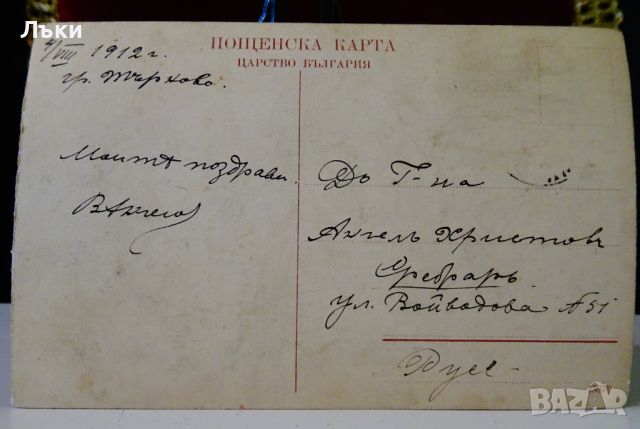 Лъки
4/VIII 1912 г.
гр. Търново.
ПОЩЕНСКА КАРТА
ЦАРСТВО БЪЛГАРИЯ
Моитѣ поздрави.
До Г-на
Ангелъ Христовъ
Сребраръ
ул. Войводова №51
Русе -
BAZAR